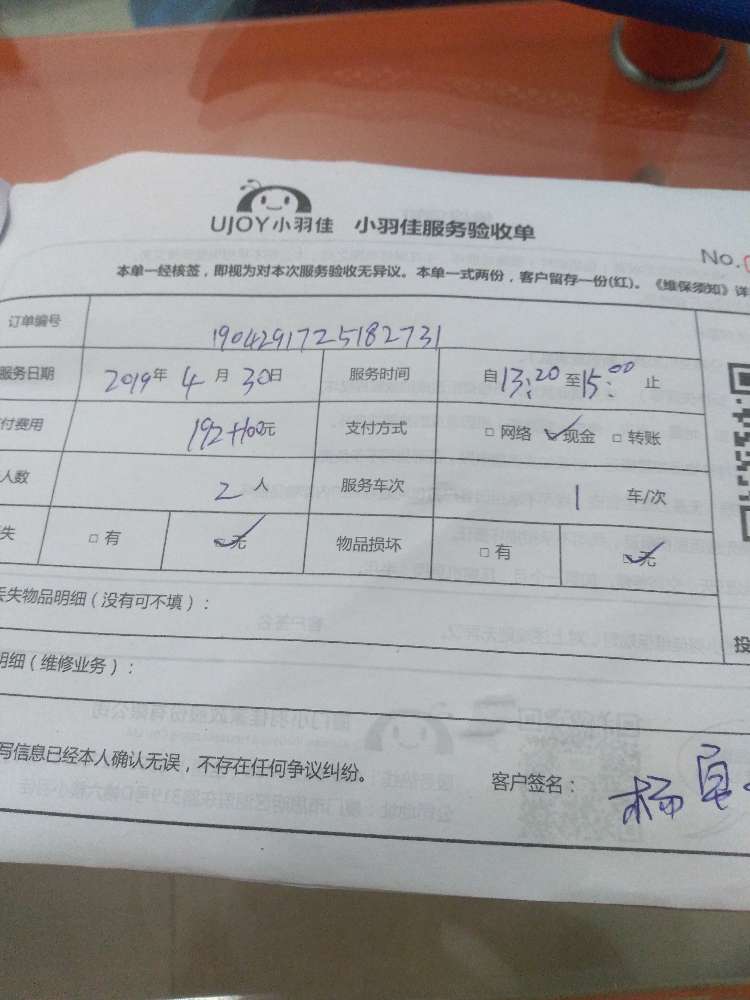 UJOY小羽佳 小羽佳服务验收单
No.
本单一经核签，即视为对本次服务验收无异议。本单一式两份，客户留存一份(红)。《维保须知》详
订单编号 1904291725182731
服务日期 2019年 4 月 30日 服务时间 自13:20至15:00 止
付费用 192+100元 支付方式 □ 网络 ☑现金 □ 转账
人数 2 人 服务车次 1 车/次
失 □ 有 ☑无 物品损坏 □ 有 ☑无
丢失物品明细（没有可不填）：
投
明细（维修业务）：
写信息已经本人确认无误，不存在任何争议纠纷。 客户签名： 杨